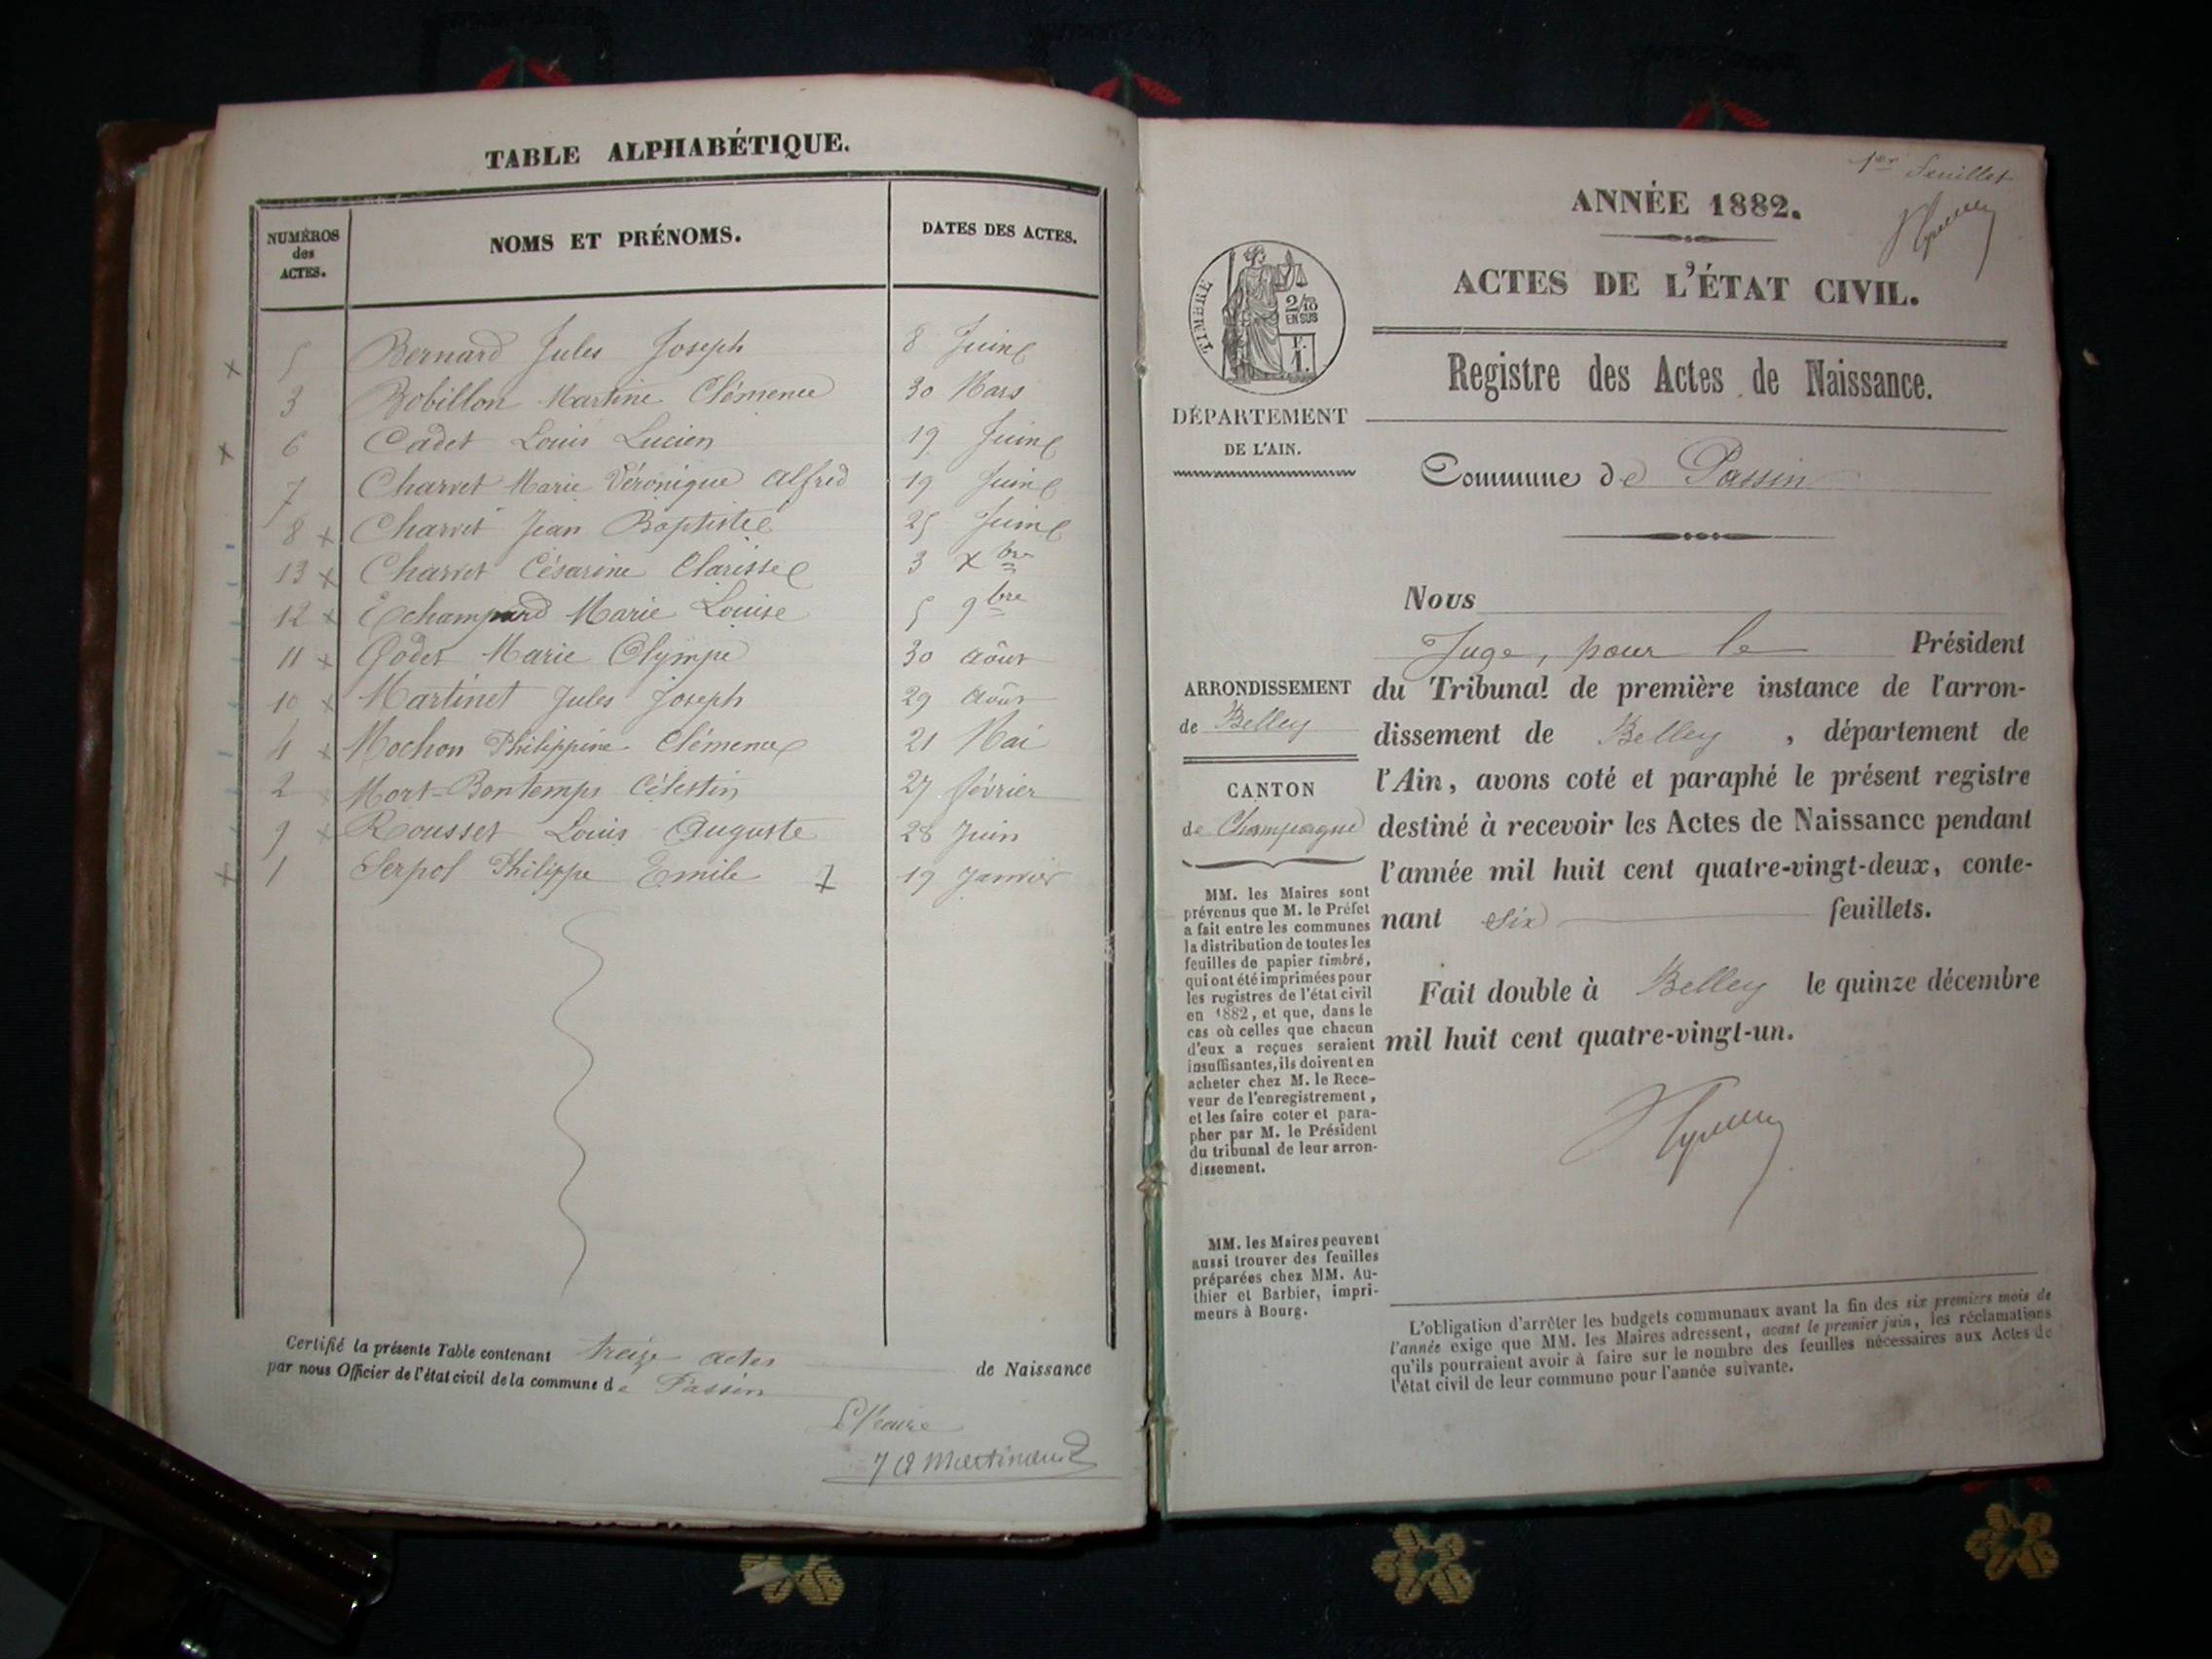 TABLE ALPHABÉTIQUE.
NUMÉROS des ACTES.
NOMS ET PRÉNOMS.
DATES DES ACTES.
5 Bernard Jules Joseph 8 Juin
3 Bobillon Martine Clémence 30 Mars
6 Cadet Louis Lucien 19 Juin
7 Charvet Marie Véronique Alfred 19 Juin
8 x Charvet Jean Baptiste 25 Juin
13 x Charvet Césarine Clarisse 3 Xbre
12 x Echampard Marie Louise 5 9bre
11 x Godet Marie Olympe 30 Août
10 x Martinet Jules Joseph 29 Août
4 x Mochon Philippine Clémence 21 Mai
2 x Mort-Bontemps Célestin 27 février
9 x Rousset Louis Auguste 28 Juin
1 Serpol Philippe Emile 19 Janvier
Certifié la présente Table contenant treize actes de Naissance
par nous Officier de l'état civil de la commune de Passin
Le Maire
1er feuillet
ANNÉE 1882.
ACTES DE L'ÉTAT CIVIL.
TIMBRE
2/10
EN SUS
Registre des Actes de Naissance.
DÉPARTEMENT
DE L'AIN.
Commune de Passin
Nous
Juge, pour le Président
du Tribunal de première instance de l'arron-
dissement de Belley, département de
l'Ain, avons coté et paraphé le présent registre
destiné à recevoir les Actes de Naissance pendant
l'année mil huit cent quatre-vingt-deux, conte-
nant six feuillets.
Fait double à Belley le quinze décembre
mil huit cent quatre-vingt-un.
ARRONDISSEMENT
de Belley
CANTON
de Champagne
MM. les Maires sont
prévenus que M. le Préfet
a fait entre les communes
la distribution de toutes les
feuilles de papier timbré,
qui ont été imprimées pour
les registres de l'état civil
en 1882, et que, dans le
cas où celles que chacun
d'eux a reçues seraient
insuffisantes, ils doivent en
acheter chez M. le Rece-
veur de l'enregistrement,
et les faire coter et para-
pher par M. le Président
du tribunal de leur arron-
dissement.
MM. les Maires peuvent
aussi trouver des feuilles
préparées chez MM. Au-
thier et Barbier, impri-
meurs à Bourg.
L'obligation d'arrêter les budgets communaux avant la fin des six premiers mois de
l'année exige que MM. les Maires adressent, avant le premier juin, les réclamations
qu'ils pourraient avoir à faire sur le nombre des feuilles nécessaires aux Actes de
l'état civil de leur commune pour l'année suivante.